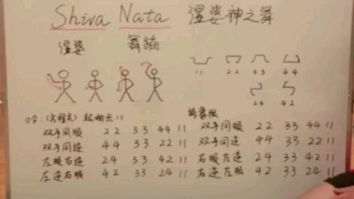 Shiva Nata 湿婆神之舞
湿婆 舞蹈
11 22 33 44
24 42
起始点 11
双手同顺 22 33 44 11
双手同逆 44 33 22 11
左顺右逆 24 33 42 11
左逆右顺 42 33 24 11
双手同顺 22 33 44 11
双手同逆 44 33 22 11
右顺左逆 24 33 42 11
右逆左顺 42 33 24 11